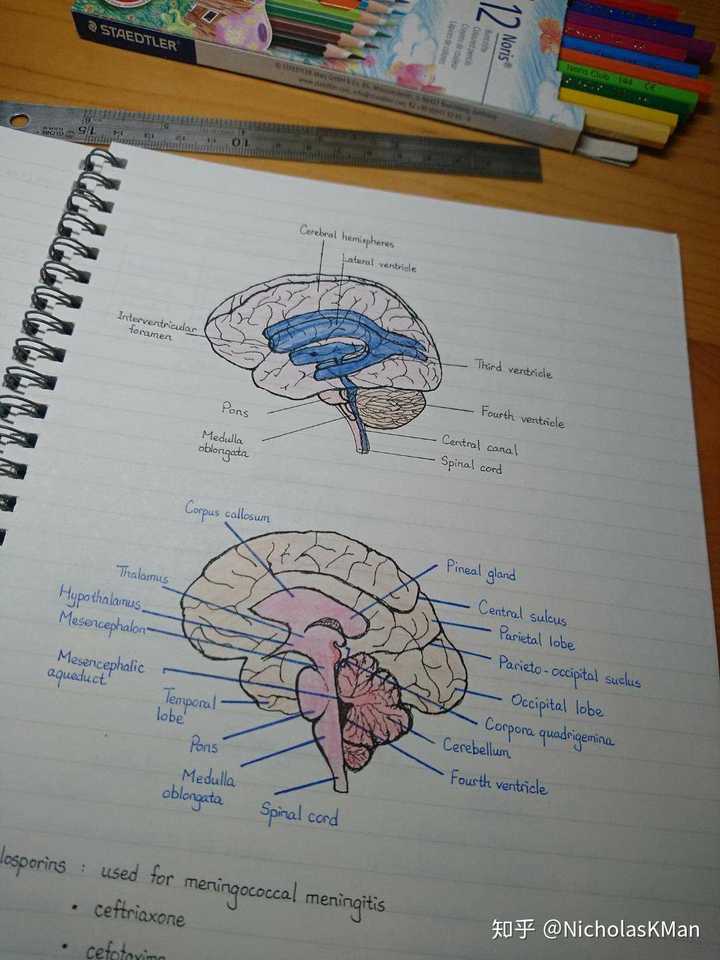 STAEDTLER
12 Noris®
Noris Club 144 CE
15 14 10
Cerebral hemispheres
Lateral ventricle
Interventricular
foramen
Third ventricle
Pons
Fourth ventricle
Medulla
oblongata
Central canal
Spinal cord
Corpus callosum
Thalamus
Pineal gland
Hypothalamus
Central sulcus
Mesencephalon
Parietal lobe
Mesencephalic
aqueduct
Parieto-occipital suclus
Temporal
lobe
Occipital lobe
Corpora quadrigemina
Pons
Cerebellum
Medulla
oblongata
Fourth ventricle
Spinal cord
losporins : used for meningococcal meningitis
• ceftriaxone
• cefotaxime
知乎 @NicholasKMan